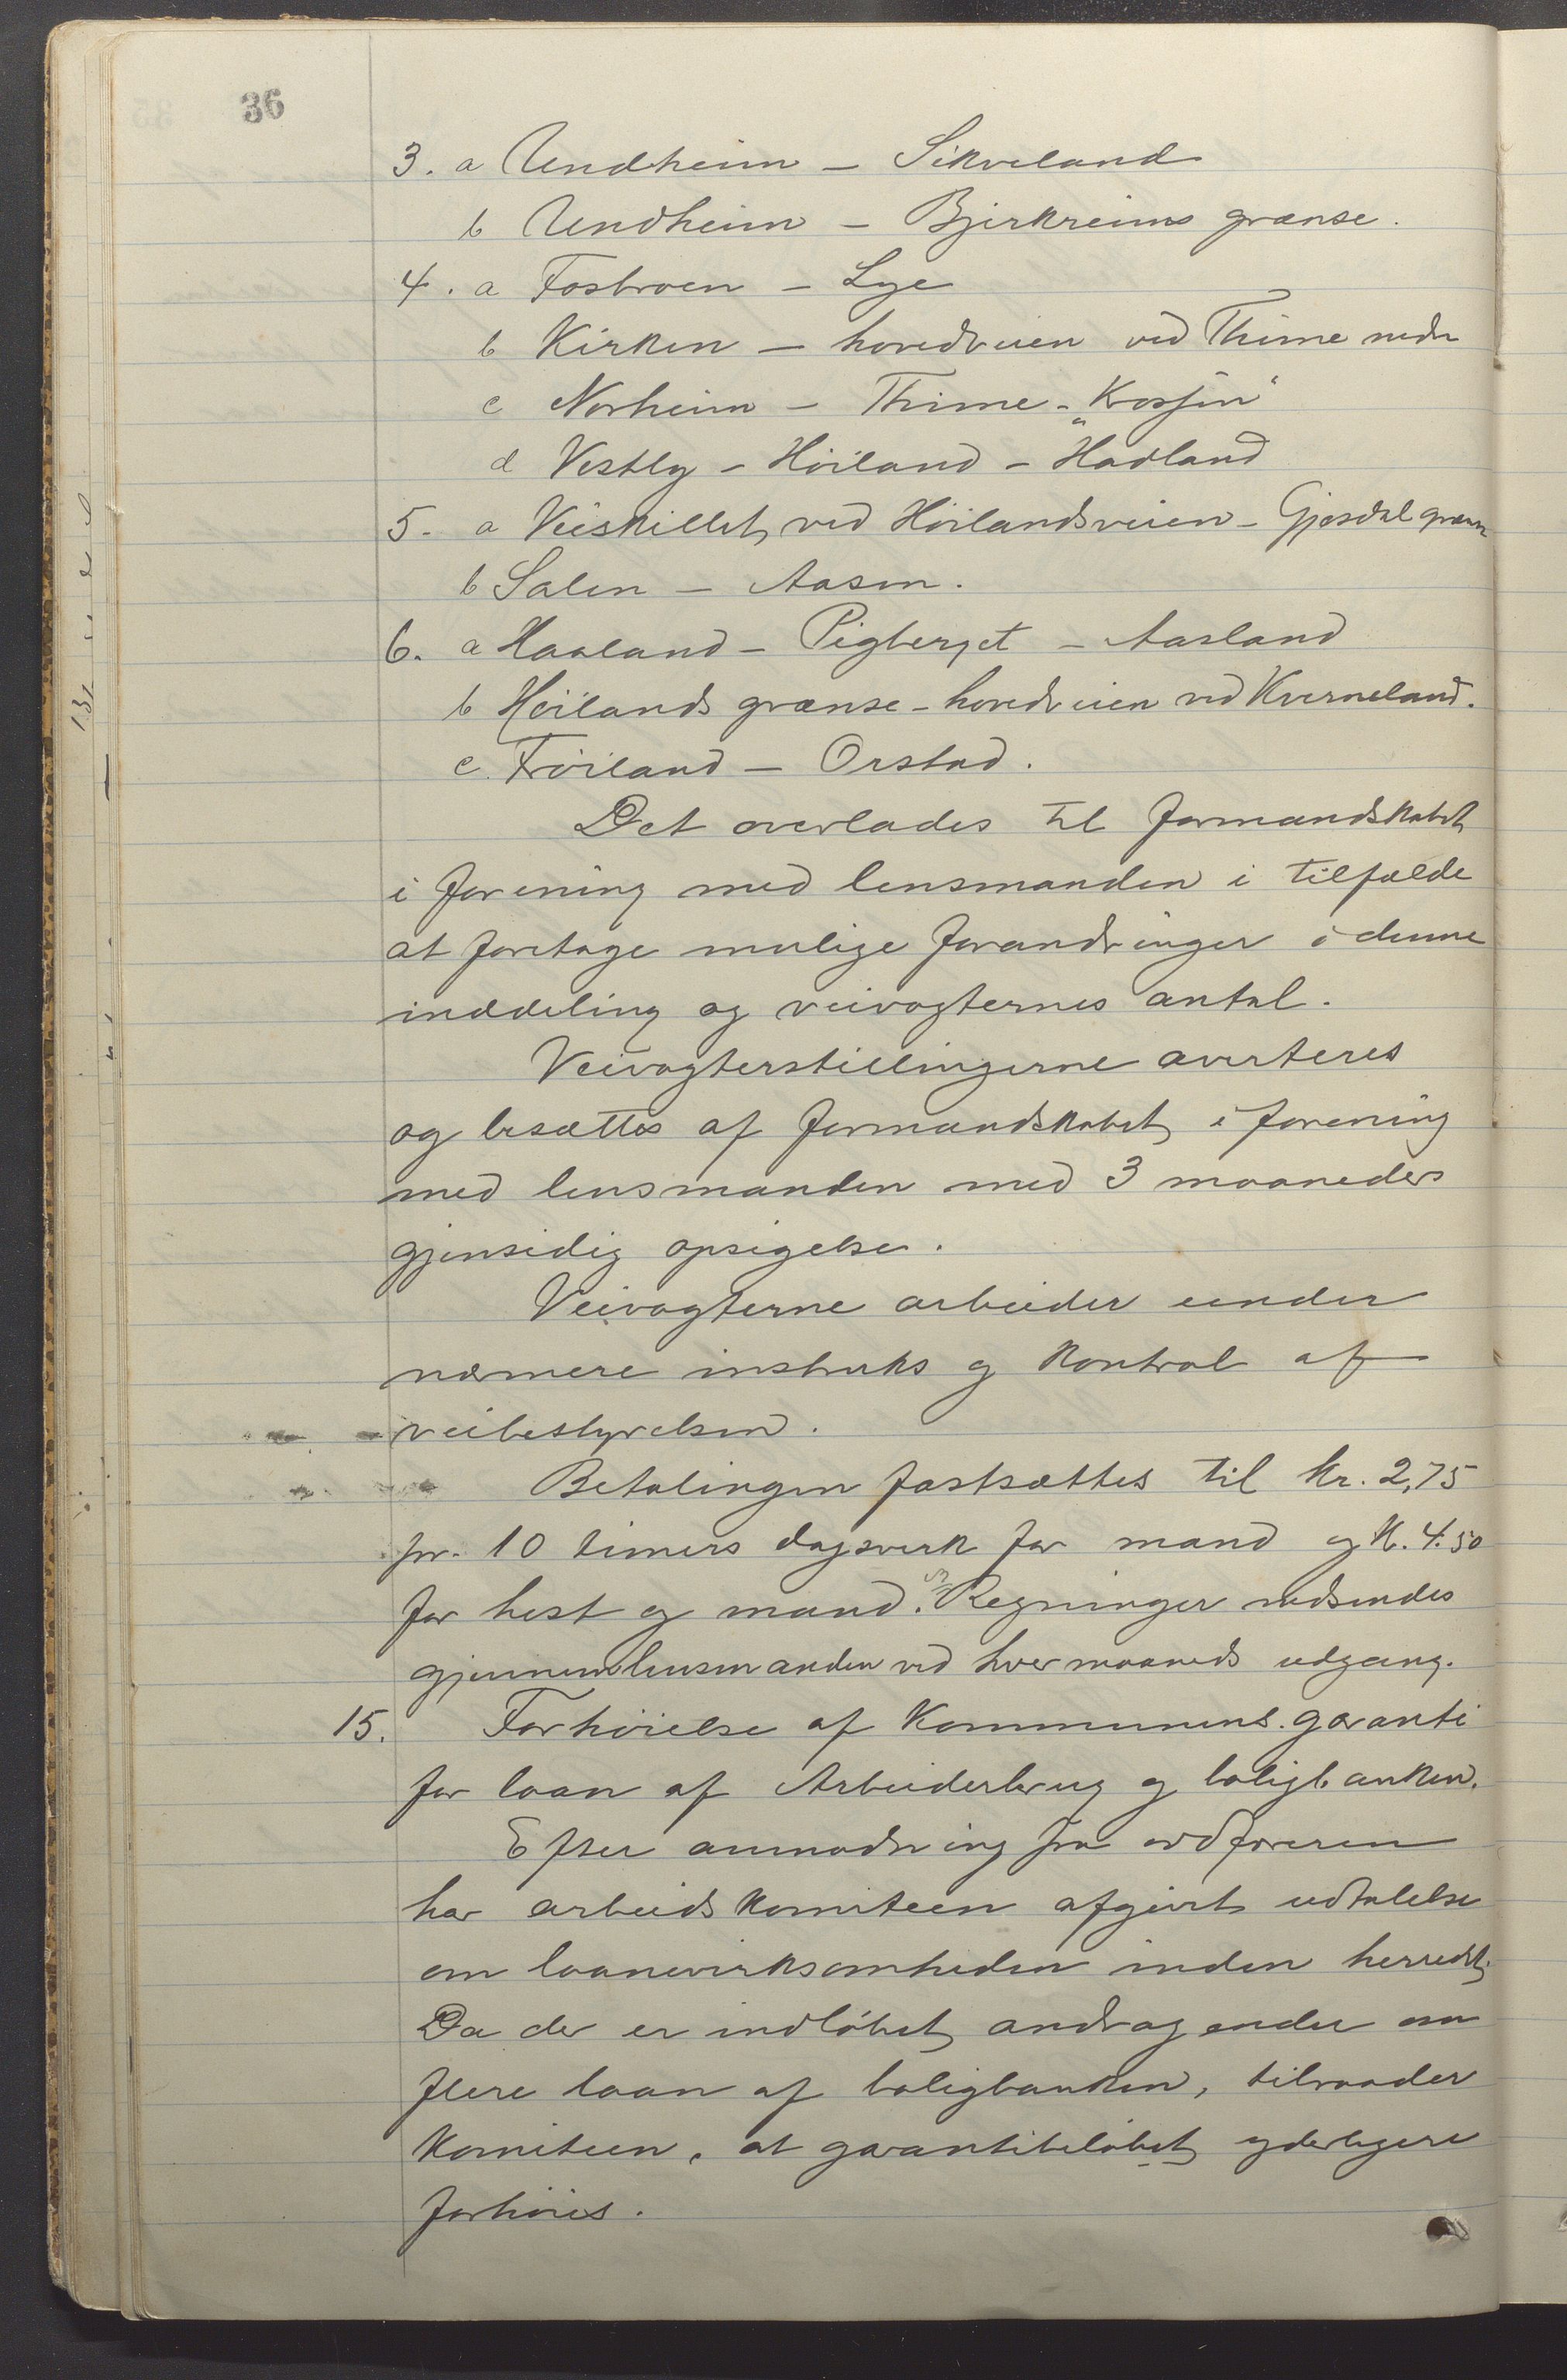 36
3. a Undheim – Sikveland
b Undheim – Bjerkreims grænse.
4. a Fosbroen – Lye
b Kirken – hovedveien ved Thime nedr
c Norheim – Thime – „Krossen“
d Vestly – Høiland – Hadland
5. a Veiskillet ved Høilandsveien – Gjesdal grænse
b Salen – Aasen.
6. a Haaland – Pigberget – Aasland
b Høilands grænse – hovedveien ved Kverneland.
c. Frøiland – Orstad.
Det overlades til formandskabet
i forening med lensmanden i tilfælde
at foretage mulige forandringer i denne
inddeling og veivogternes antal.
Veivogterstillingerne averteres
og besættes af formandskabet i forening
med lensmanden med 3 maaneders
gjensidig opsigelse.
Veivogterne arbeider under
nærmere instruks og kontrol af
veibestyrelsen.
Betalingen fastsættes til kr. 2,75
pr. 10 timers dagsverk for mand og kr. 4.50
for hest og mand. Regninger indsendes
gjennem lensmanden ved hver maaneds udgang.
15. Forhøielse af kommunens garanti
for laan af Arbeiderbrug og boligbanken.
Efter anmodning fra ordføreren
har arbeidskomiteen afgivet udtalelse
om laanevirksomheden inden herredet.
Da der er indløbet andragender om
flere laan af boligbanken, tilraader
komiteen, at garantibeløbet yderligere
forhøies.